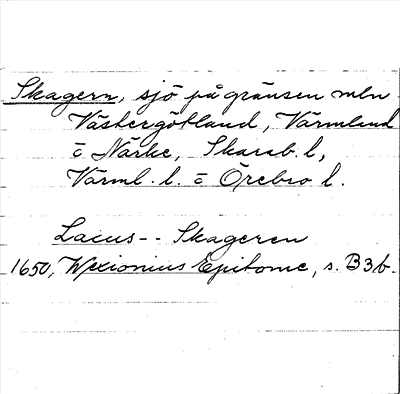 Skagern, sjö på gränsen mln
Västergötland, Värmland
o Närke, Skarab. l,
Värml. l. o Örebro l.
Lacus-- Skageren
1650, Wexionius Epitome, s. B3b.